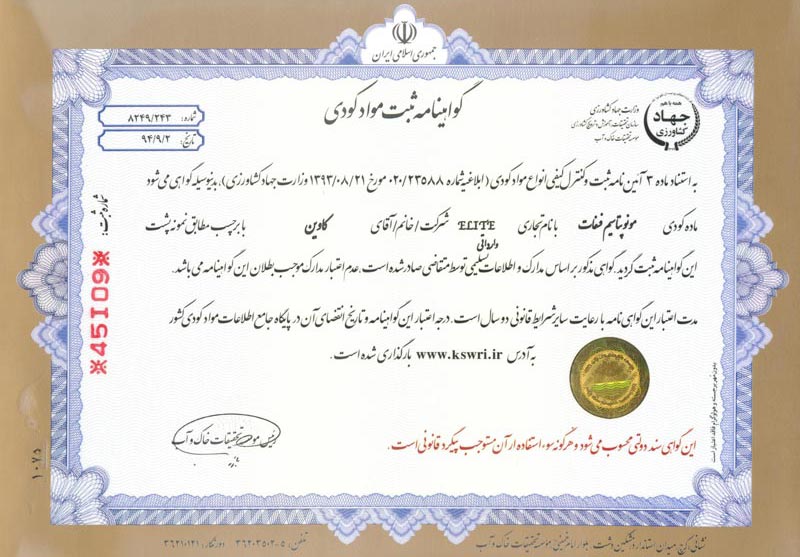 جمهوری اسلامی ایران
گواهینامه ثبت مواد کودی
شماره: ۸۲۴۹/۲۴۳
تاریخ: ۹۴/۹/۲
همه با هم
جهاد
کشاورزی
وزارت جهاد کشاورزی
سازمان تحقیقات، آموزش و ترویج کشاورزی
موسسه تحقیقات خاک و آب
به استناد ماده ۳ آئین نامه ثبت و کنترل کیفی انواع مواد کودی (ابلاغیه شماره ۰۲۰/۲۳۵۸۸ مورخ ۱۳۹۳/۰۸/۲۱ وزارت جهاد کشاورزی)، بدینوسیله گواهی می شود
ماده کودی مونو پتاسیم فسفات با نام تجاری ELITE شرکت/خانم/آقای کاوین با برچسب مطابق نمونه پشت
وارداتی
این گواهینامه ثبت گردید. گواهی مذکور بر اساس مدارک و اطلاعات تسلیمی توسط متقاضی صادر شده است، عدم اعتبار مدارک موجب بطلان این گواهینامه می باشد.
مدت اعتبار این گواهی نامه با رعایت سایر شرایط قانونی دو سال است. درجه اعتبار این گواهینامه و تاریخ انقضای آن در پایگاه جامع اطلاعات مواد کودی کشور
به آدرس www.kswri.ir بارگذاری شده است.
شماره ثبت:
※45109※
رئیس موسسه تحقیقات خاک و آب
این گواهی سند دولتی محسوب می شود و هرگونه سوء استفاده از آن مستوجب پیگرد قانونی است.
بدون مهر برجسته و هولوگرام فاقد اعتبار است
۱۰۷۵
نشانی: کرج، میدان استاندارد، مشکین دشت، بلوار امام خمینی، موسسه تحقیقات خاک و آب
تلفن: ۵-۳۶۲۰۳۵۰۲ دورنگار: ۳۶۲۱۰۱۲۱